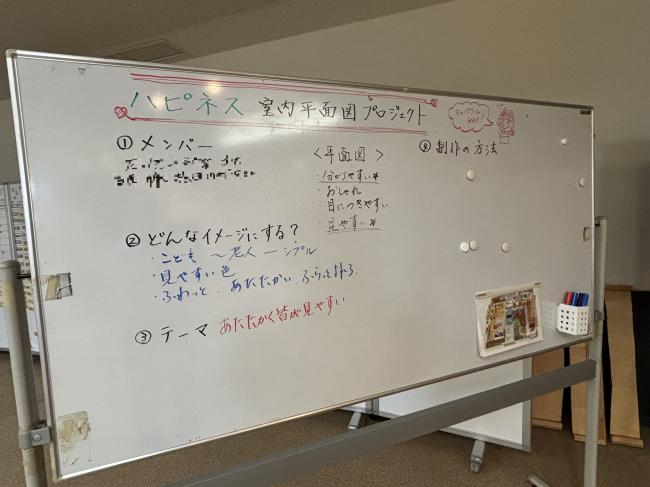 ハピネス 室内平面図プロジェクト
① メンバー
② どんなイメージにする?
・こども 〜老人 ー シンプル
・見やすい色
・ふわっと あたたかい ふらっとよれる
③ テーマ あたたかく皆が見やすい
<平面図>
・分かりやすい
・おしゃれ
・目につきやすい
・見やすい
④ 制作の方法